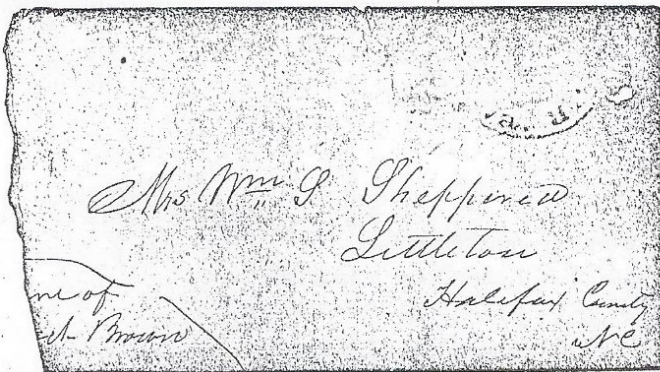 Mrs Wm S Shepperd
Littleton
Halifax County
NC
of
Brown